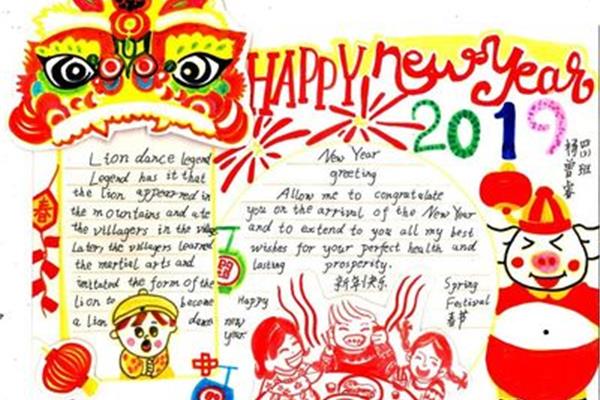 HAPPY new Year
2019
四班
杨曾睿
Lion dance legend
Legend has it that
the lion appearred in
the mountains and ate
the villagers in the village
Later the villagers learned
the martial arts and
imitated the form of the
lion to become
a lion dance
New Year
greeting
Allow me to congratulate
you on the arrival of the New Year
and to extend to you all my best
wishes for your perfect health and
lasting prosperity.
新年快乐
Happy
new
year
Spring
Festival
春节
春
中